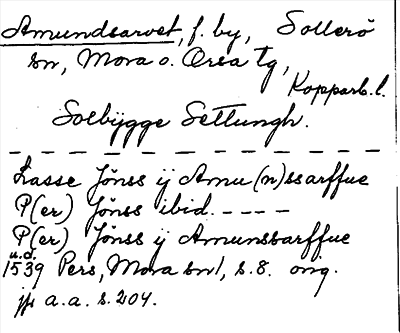 Amundsarvet, f. by, Sollerö
sn, Mora o. Orsa tg,
Kopparb. l.
Solbÿgge Settungh.
— — — — — — — — — — — —
Lasse Jönss ÿ Amu(n)ssarffue
P(er) Jönss ibid. - - - -
P(er) Jönss ÿ Amunssarffue
u.d.
1539 Pers, Mora sn 1, s. 8. orig.
jfr a.a. s. 204.